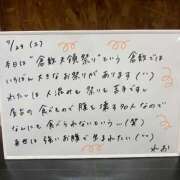 9/29 (土)
本日は"倉敷天領祭り"という 倉敷では
いちばん大きなお祭りがあります(^^)
わたしは人混みも祭りも苦手ですし
屋台の食べもので腹を壊す90人なので
なんにも食べられないという…(笑)
来世は強いお腹で生まれたい(^^)
れお